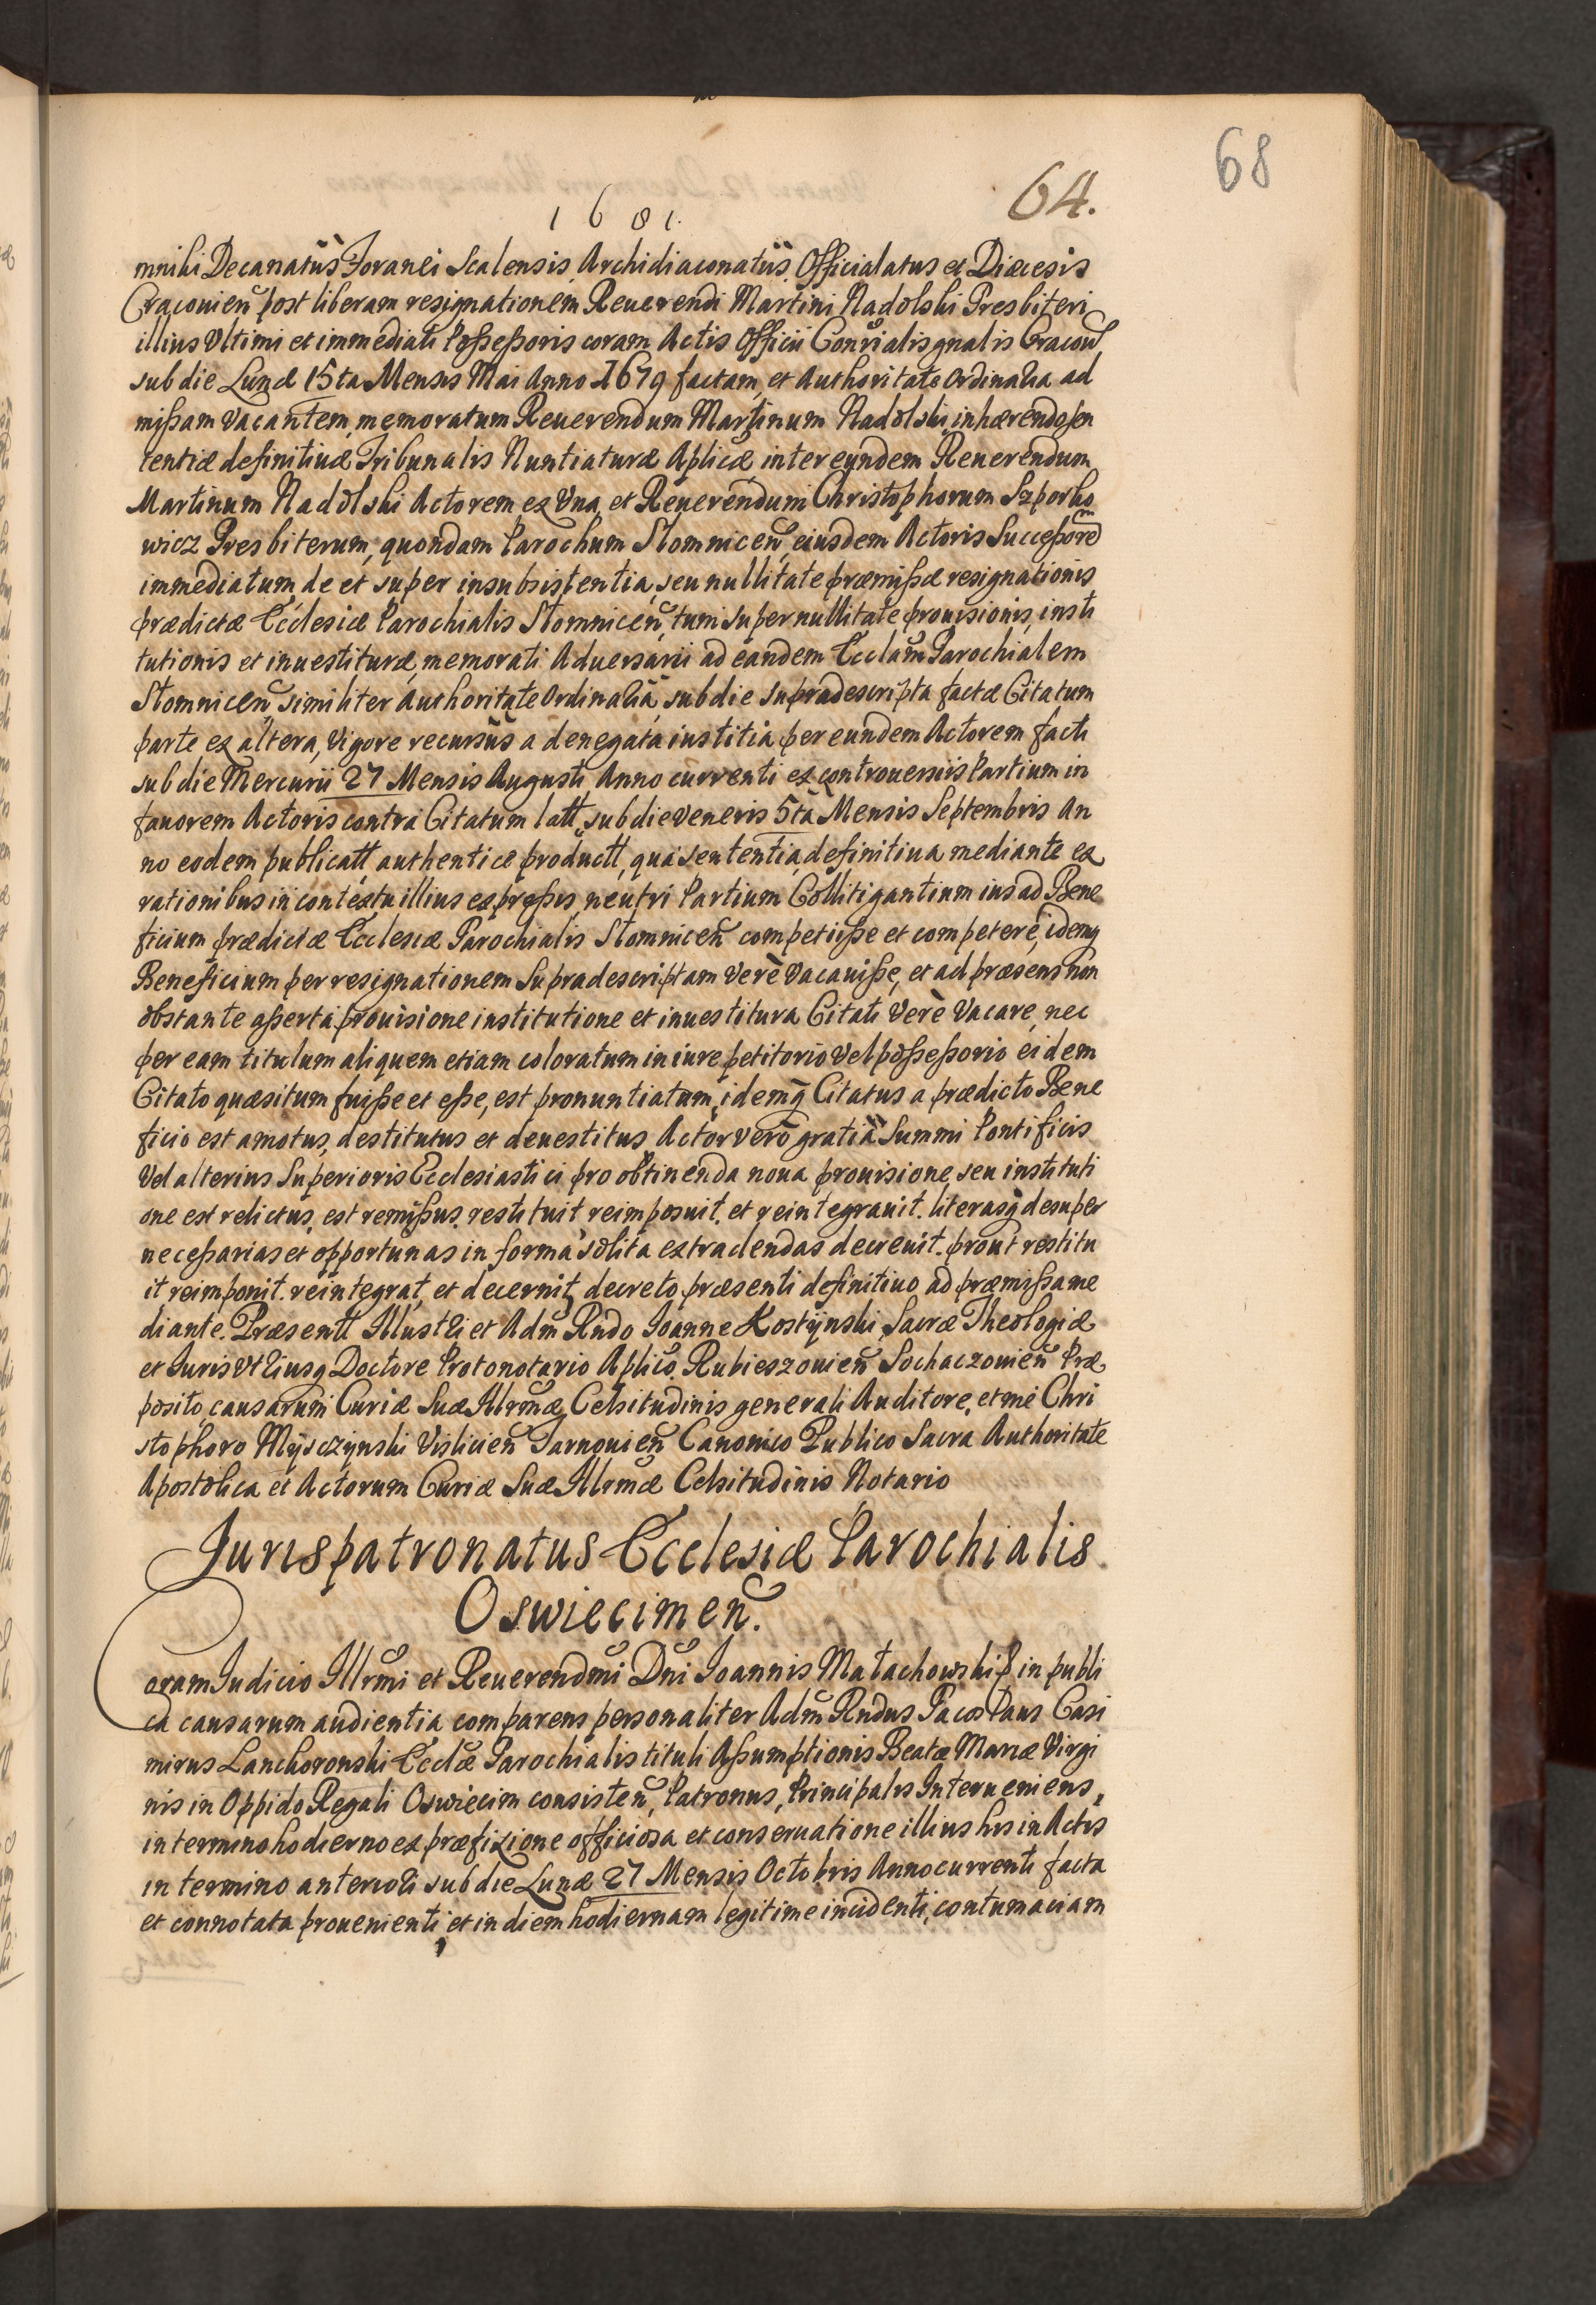 68
64.
1 6 8 1.
mniki Decanatus Foranei Scalensis, Archidiaconatus, Officialatus et Diæcesis
Cracouien post liberam resignationem Reuerendi Martini Nadolski Presbiteri
illius Vltimi et immediati Poßeßoris coram Actis Officii Conrialis gnalis Cracou
sub die Lunæ 15ta Mensis Mai Anno 1679 factam, et Authoritate Ordinaria ad
mißam Vacantem, memoratum Reuerendum Martinum Nadolski, inhærendo sen
tentiæ definitiuæ Tribunalis Nuntiaturæ Aplicæ inter eundem Reuerendum
Martinum Nadolski Actorem ex Vna, et Reuerendum Christophorum Szporko
wicz Presbiterum, quondam Parochum Słomnicen, eiusdem Actoris Succeßorem
immediatum, de et super insubsistentia, seu nullitate præmißæ resignationis
prædictæ Ecclesiæ Parochialis Słomnicen, tum super nullitate prouisionis, insti
tutionis et inuestituræ, memorati Aduersarii ad eandem Ecclam Parochialem
Słomnicen, similiter Authoritate Ordinaria, sub die supradescripta factæ Citatum
parte ex altera, Vigore recursus a denegata iustitia per eundem Actorem facti
sub die Mercurii 27 Mensis Augusti Anno currenti ex controuersiis Partium in
fauorem Actoris contra Citatum latt, sub die Veneris 5ta Mensis Septembris An
no eodem publicatt, authentice productt, qua sententia definitiua mediante ex
rationibus in contextu illius expreßis, neutri Partium Collitigantium ius ad Bene
ficium prædictæ Ecclesiæ Parochialis Słomnicen competiiße et competere, idemq
Beneficium per resignationem Supradescriptam Verè Vacauiße, et ad præsens non
obstante aßerta prouisione institutione et inuestitura Citati Verè Vacare, nec
per eam titulum aliquem etiam coloratum in iure petitorio Vel poßeßorio eidem
Citato quæsitum fuiße et eße, est pronuntiatum, idemq Citatus a prædicto Bene
ficio est amotus, destitutus et deuestitus, Actor verò gratiæ Summi Pontificis
Vel alterius Superioris Ecclesiastici pro obtinenda noua prouisione, seu instituti
one est relictus, est remißus, restituit reimposuit, et reintegrauit, literasq desuper
neceßarias et opportunas in forma solita extradendas decreuit, prout restitu
it reimponit, reintegrat, et decernit, decreto præsenti definitiuo, ad præmißa me
diante. Præsentt Illustri et Adm Rndo Ioanne Kostÿnski, Sacræ Theologiæ
et Iuris Vtriusq Doctore Protonotario Aplico, Rubieszouien Sochaczouien Præ
posito, causarum Curiæ Suæ Illrmæ Celsitudinis generali Auditore, et me Chri
stophoro Mÿsczÿnski Vislicien Tarnouien Canonico Publico Sacra Authoritate
Apostolica et Actorum Curiæ Suæ Illrmæ Celsitudinis Notario
Iurispatronatus Ecclesiæ Parochialis
Oswiecimen.
Coram Iudicio Illrmi et Reuerendmi Dni Ioannis Małachowski in publi
ca causarum audientia comparens personaliter Adm Rndus Casi
mirus Lanckoronski Eccliæ Parochialis tituli Aßumptionis Beatæ Mariæ Virgi
nis in Oppido Regali Oswiecim consisten, Patronus, Principalis Interueniens,
in termino hodierno ex præfixione officiosa et conseruatione illius his in Actis
in termino anteriori sub die Lunæ 27 Mensis Octobris Anno currenti facta
et connotata prouenienti, et in diem hodiernam legitime incidenti, contumaciam